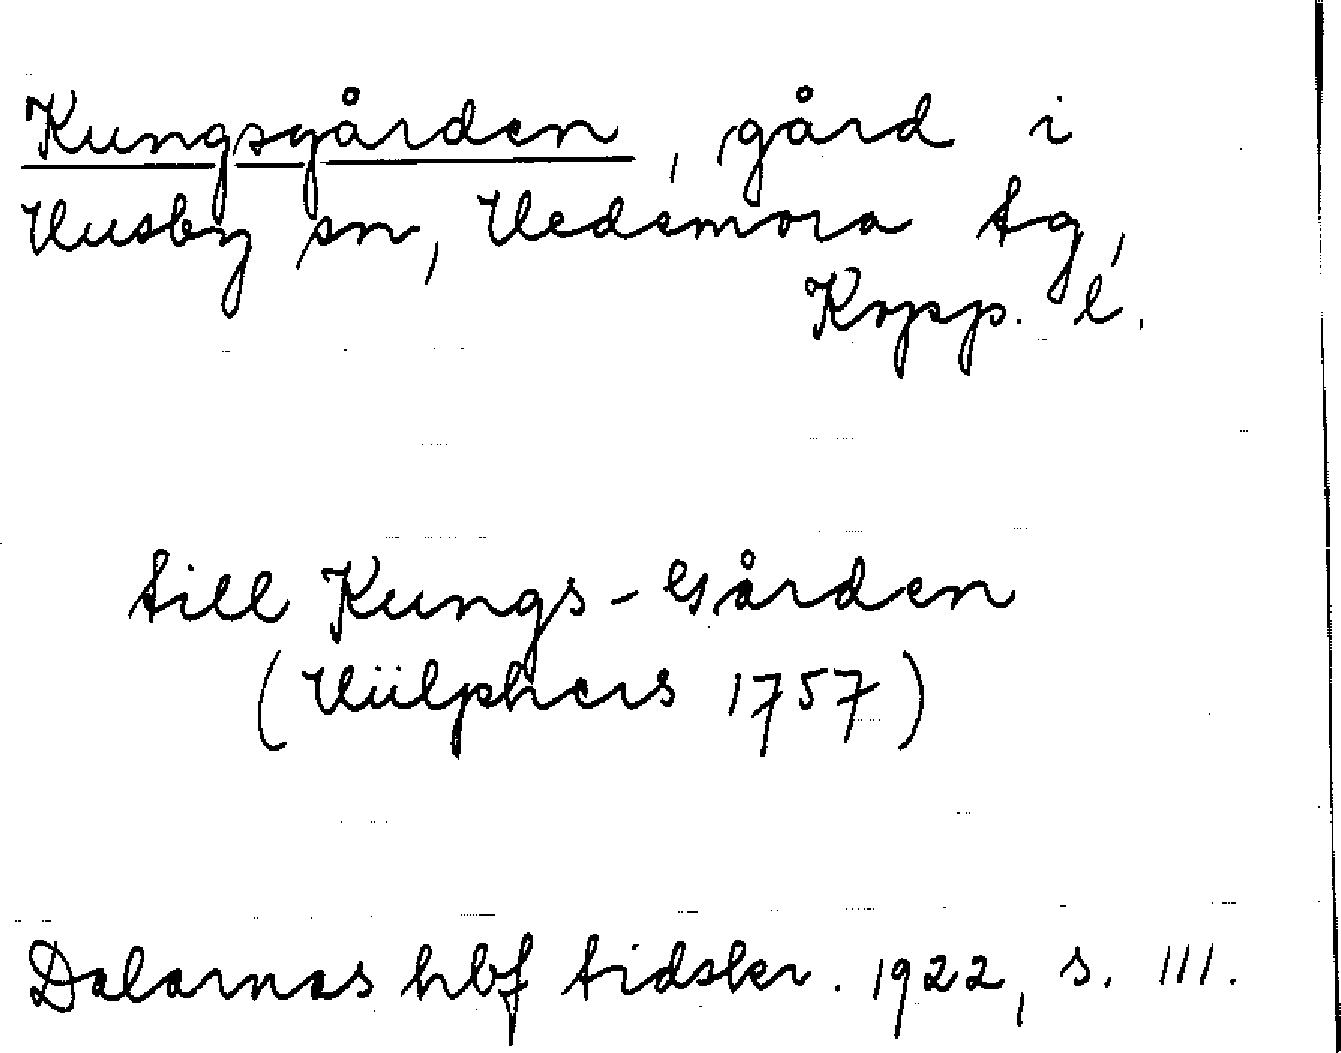 Kungsgården, gård i
Husby sn, Hedemora tg,
Kopp. l.
till Kungs-Gården
(Hülphers 1757)
Dalarnas hbf tidskr. 1922, s. 111.